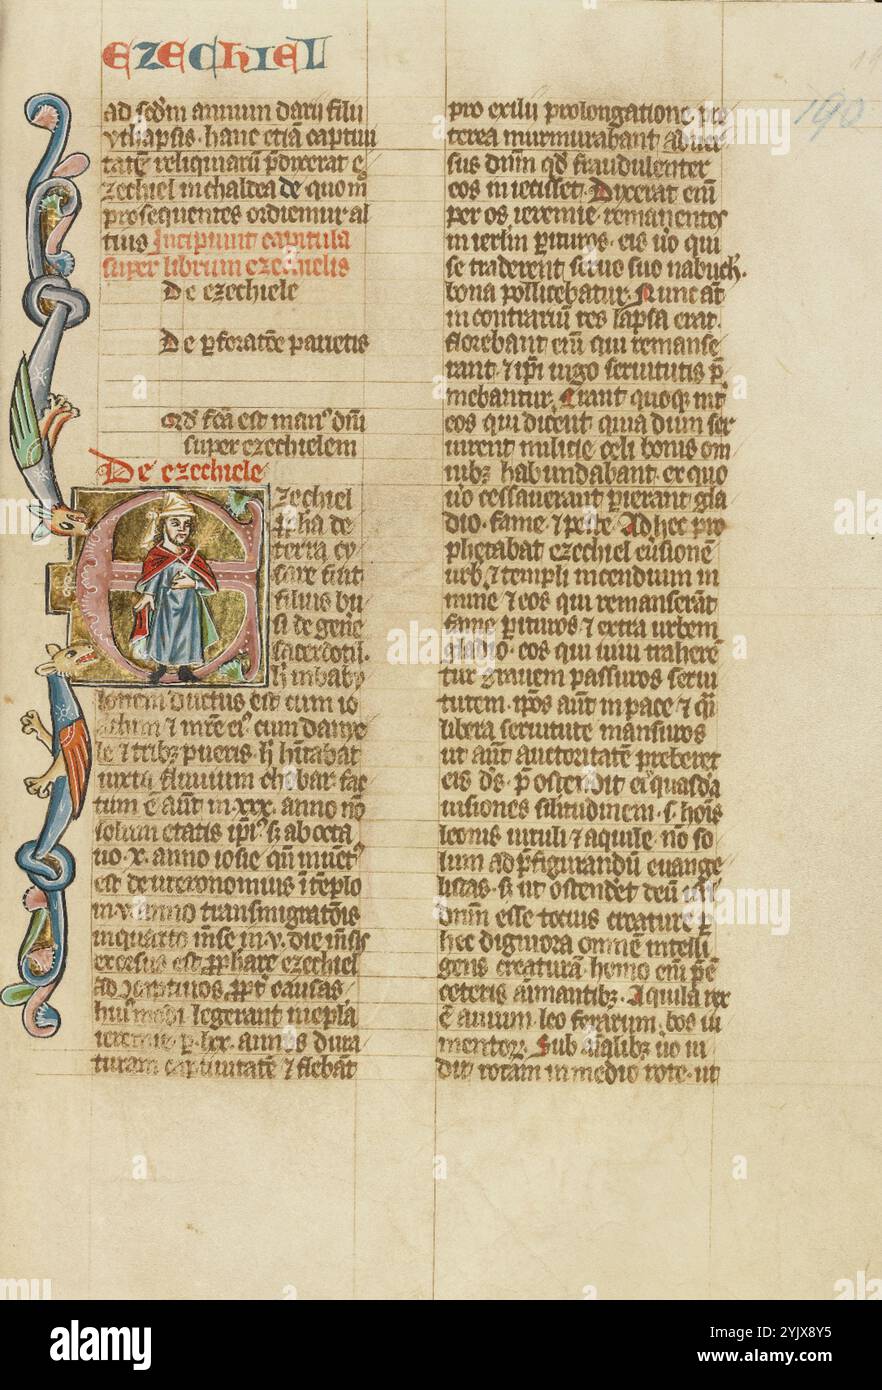 EZECHIEL
190
ad scdm annum darii filii
ythapsis. hanc etiā captiui
tatē reliquiarū p̄dixerat e
zechiel in chaldea de quo m̄
prosequentes ordiemur al
tius Incipiunt capitula
super librum ezechielis
De ezechiele
De p̄foratōe parietis
Qd̄ fcā est man⁹ dn̄i
super ezechielem
De ezechiele
Ezechiel
p̄pha de
terra
fuit
filius bu
si de gene
sacerdotū.
h̄ in baby
lonem ductus est cum io
achim ⁊ mr̄e ei⁹ cum danye
le ⁊ trib⁊ pueris. h̄ hītabat
iuxta fluuium chobar. fac
tum ē aūt in .xxx. anno nō
solum etatis ip̄i⁹ s; ab octa
uo .x. anno iosie qn̄ inuēt⁹
est deuteronomius ī tēplo
in .v. anno transmigratōis
in quarto mēse in .v. die mēsis
exorsus est p̄phare ezechiel
ad captiuos, p̄pt̄ causas
hui⁹modi legerant in epl̄a
ieremie p̄ .lxx. annos dura
turam captiuitatē ⁊ flebāt
pro exilii prolongatione. pre
terea murmurabant aduer
sus dn̄m qd̄ fraudulenter
eos in iecisset. Dixerat em̄
per os ieremie. remanentes
in ierl̄m p̄ituros. eis u̇o qui
se traderent seruo suo nabuch.
bona pollicebatur. Nunc aūt
in contrariū res lapsa erat.
florebant em̄ qui remanse
rant. ⁊ ip̄i iugo seruitutis p̄
mebantur. Erant quoq; int̄
eos qui dicerent quia dum ser
uirent militie celi bonis om
nib⁊ habundabant. ex quo
u̇o cessauerant p̄ierant gla
dio. fame ⁊ peste. Ad hec pro
phetabat ezechiel eu̇sionē
urb̄ ⁊ templi incendium in
mine ⁊ eos qui remanserāt
fame p̄ituros ⁊ extra urbem
gladio. eos qui uiui traherē
tur grauem passuros serui
tutem. ip̄os aūt in pace ⁊ q̄si
libera seruitute mansuros
ut aūt auctoritatē preberet
eis ds̄. p̄ostendit ei quasdā
uisiones silitudinem .s. hoīs
leonis uituli ⁊ aquile. nō so
lum ad p̄figurandū euange
listas. s; ut ostenderet deū
dn̄m esse tocius creature p̄
hec digniora omnē intelli
gens creaturā. homo em̄ p̄ē
ceteris aīmantib⁊. Aquila rex
ē auium. leo ferarum. bos iu
mentoꝝ. Sub alialib⁊ u̇o ui
dit rotam in medio rote. ut
alamy
Image ID: 2YJX8Y5
www.alamy.com